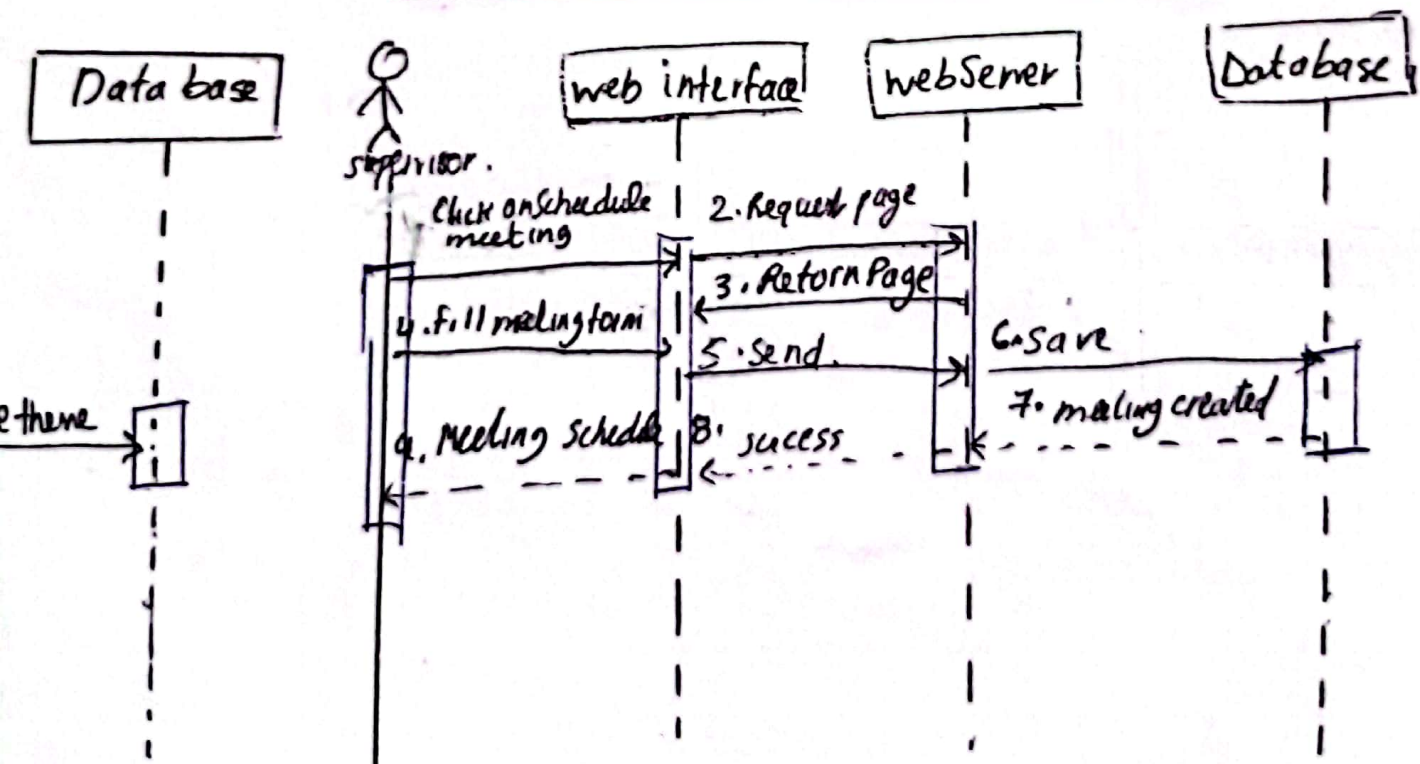 Data base
web interface
webServer
Database
supervisor.
Click on Schedule
meeting
2. Request page
3. Retorn Page
4. Fill meeting form
5. Send.
6. Save
7. meeting created
e theme
9. Meeting Schedule
8. sucess